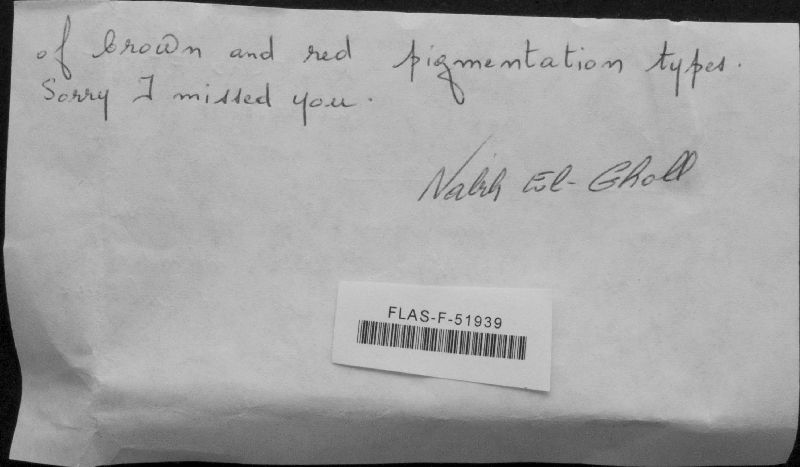 of brown and red pigmentation types.
Sorry I missed you.
Nabih El-Gholl
FLAS-F-51939